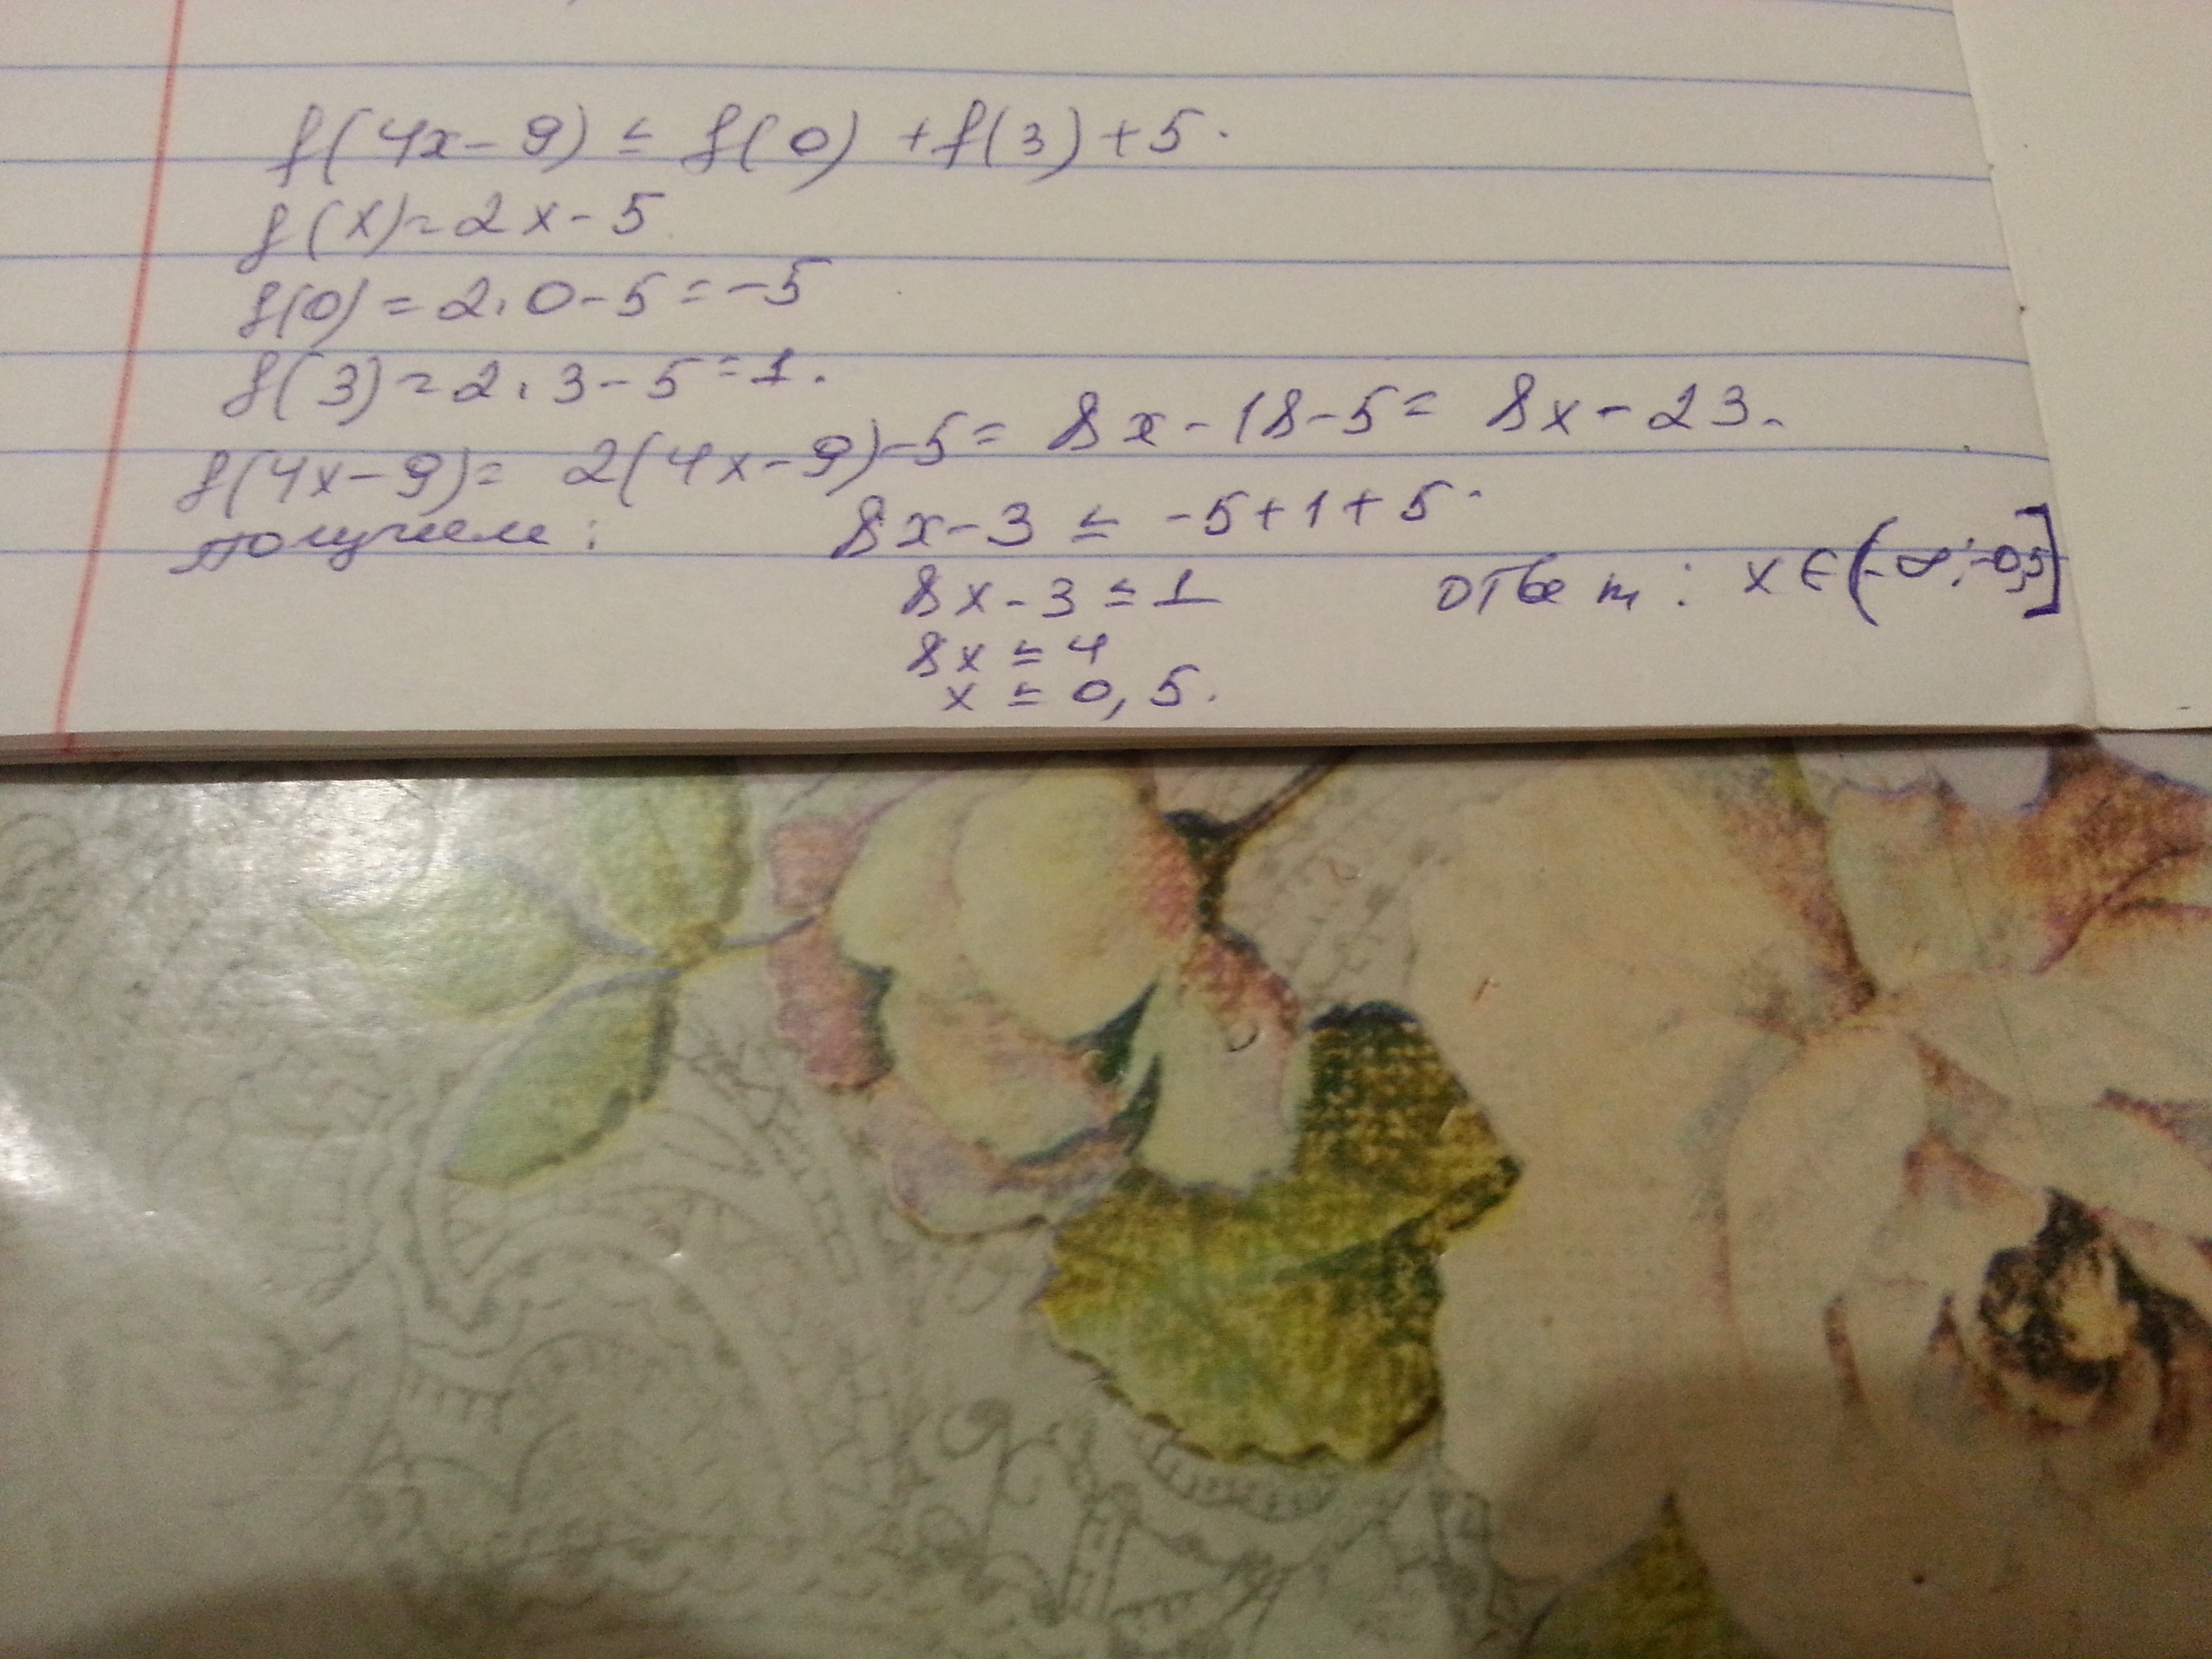 f(4x-9) ≤ f(0) + f(3) + 5.
f(x) = 2x - 5
f(0) = 2·0 - 5 = -5
f(3) = 2·3 - 5 = 1.
f(4x-9) = 2(4x-9) - 5 = 8x - 18 - 5 = 8x - 23.
получаем: 8x - 3 ≤ -5 + 1 + 5.
8x - 3 ≤ 1
8x ≤ 4
x ≤ 0,5.
ответ: x ∈ (-∞; -0,5]